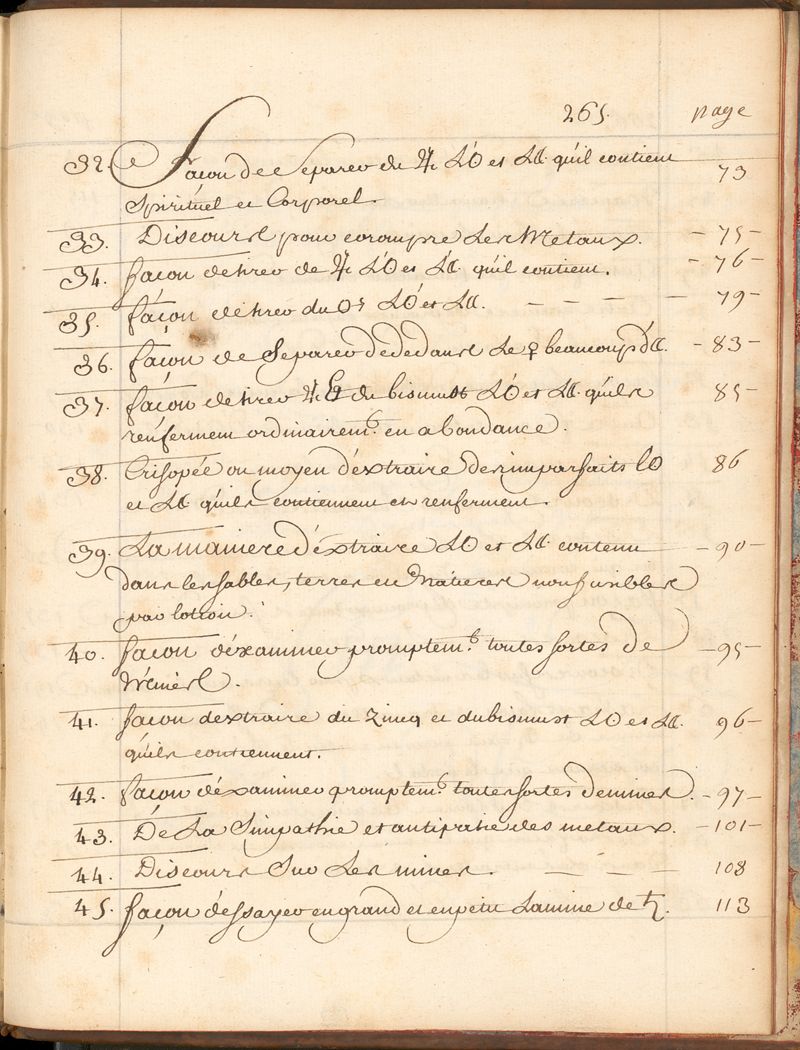 265. page
32. façon de Separer du ♃ L'O et LA. qu'il contient 73
Spirituel et Corporel.
33. Discours pour corompre Les Metaux. - 75 -
34. façon de tirer de ♃ L'O et LA qu'il contient. - 76 -
35. façon de tirer du L'O et LA. - - - - 79 -
36. façon de Separer de dedans Le ♀ beaucoup d'A. - 83 -
37. façon de tirer du bismust L'O et LA. qu'ils 85 -
renferment ordinairemt. en abondance.
38. Crisopée ou moyen d'extraire des imparfaits LO 86
et LA qu'ils contiennent et renferment.
39. La maniere d'éxtraire LO et LA. contenu - 90 -
dans les sables, terres et Matieres non fusibles
par lotion.
40. façon d'éxaminer promptemt. toutes sortes de - 95 -
41. façon d'extraire du Zincq et du bismust LO et LA. 96 -
qu'ils contiennent.
42. façon d'éxaminer promptemt. toutes sortes de mines. - 97 -
43. De La Simpathie et antipatie des metaux. - 101 -
44. Discours Sur Les mines. - - - 108
45. façon d'essayer en grand et en petit La mine de ♄. 113